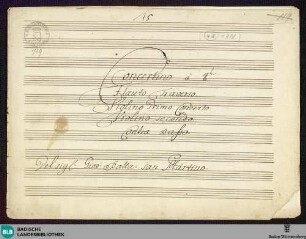 15
Concertino à 4.
Flauto Traverso
Violino Primo Concerto
Violino secondo
Del sig. Gioo Batta san Martino
BLB
BADISCHE
LANDESBIBLIOTHEK
Baden-Württemberg